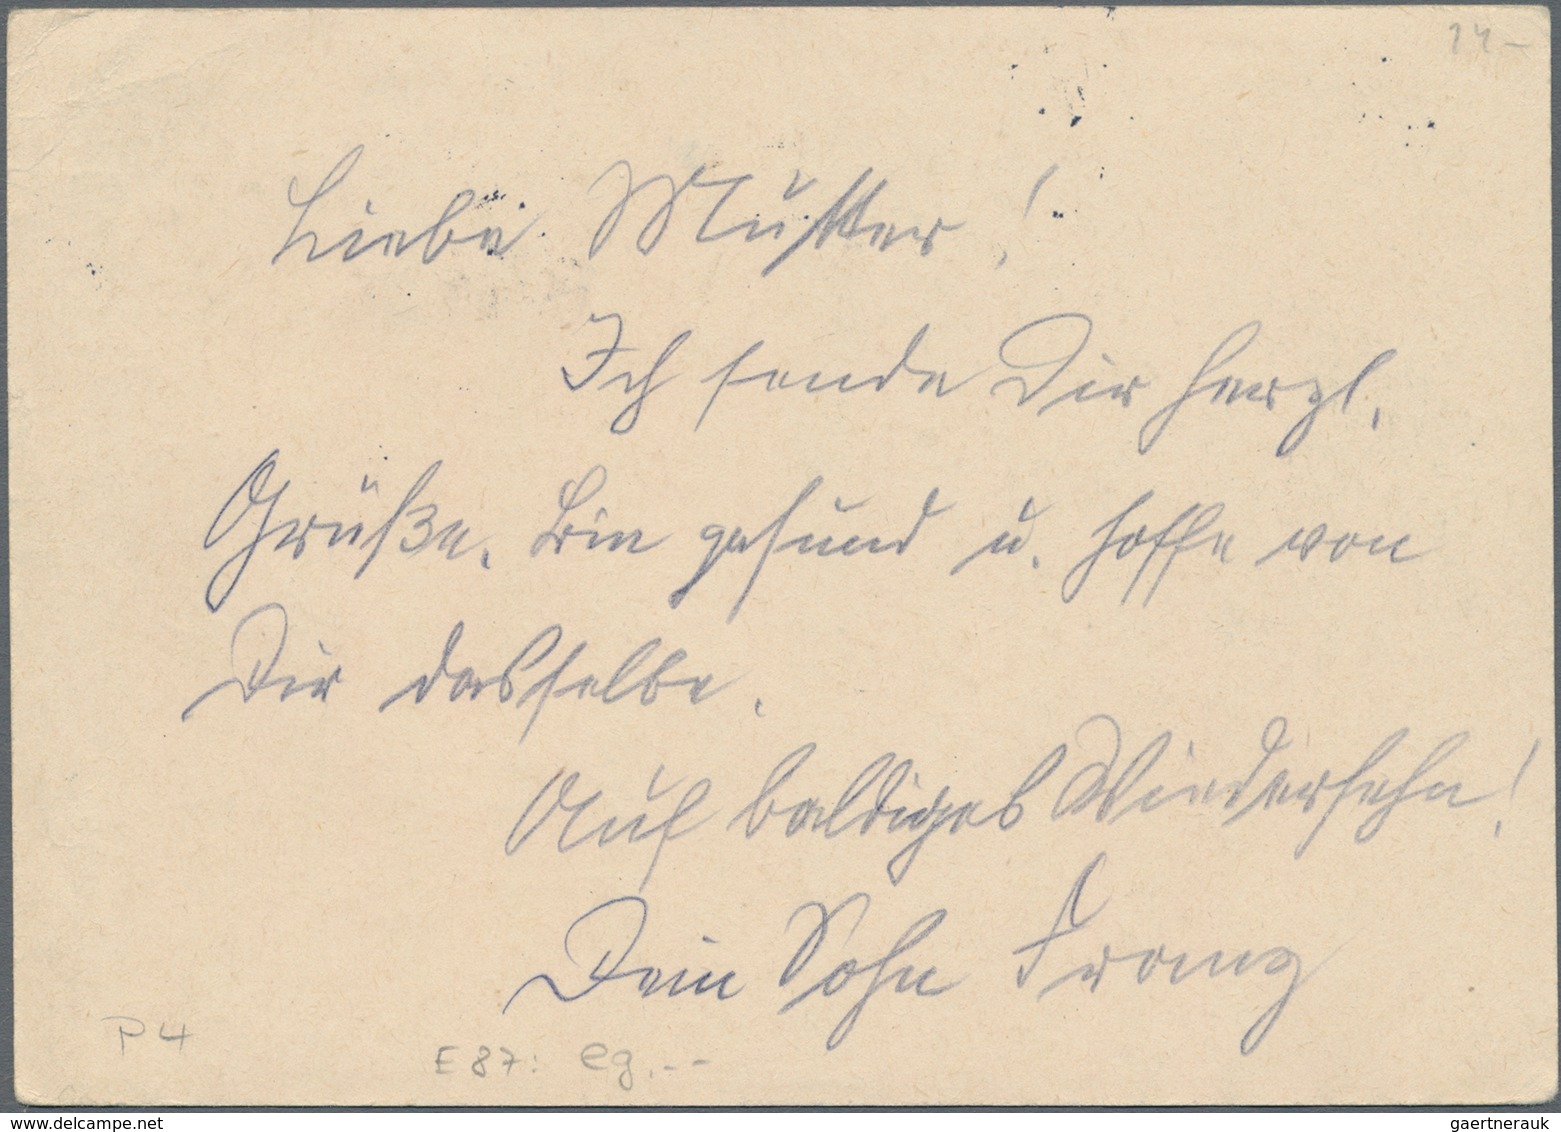 14-
Liebe Mutter!
Ich sende Dir herzl.
Grüße. Bin gesund u. hoffe von
Dir dasselbe.
Auf baldiges Wiedersehn!
Dein Sohn Franz
P4
E 87: eg.--
www.delcampe.net
gaertnerauk